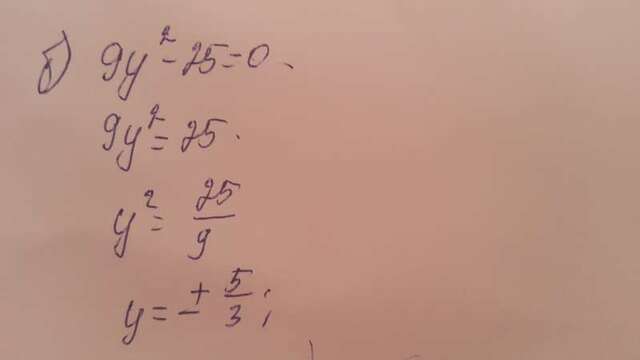 б) 9y² - 25 = 0.
9y² = 25.
y² = 25/9
y = ± 5/3;